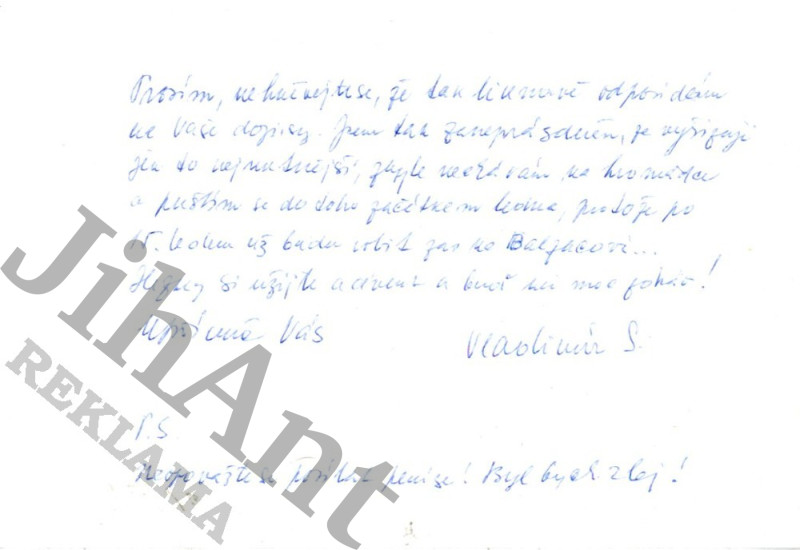 Prosím, nehněvejte se, že tak liknavě odpovídám
na Vaše dopisy. Jsem tak zaneprázdněn, že vyřizuji
jen to nejnutnější, zbytek nechávám na hromádce
a pustím se do toho začátkem ledna, protože po
15. lednu už budu robit zas na Balzacovi...
Hezky si užijte advent a buď mi moc zdráv!
Upřímně Vás
Vladimír S.
P.S.
Neopovažte se posílat peníze! Byl bych zlej!
JihAnt
REKLAMA